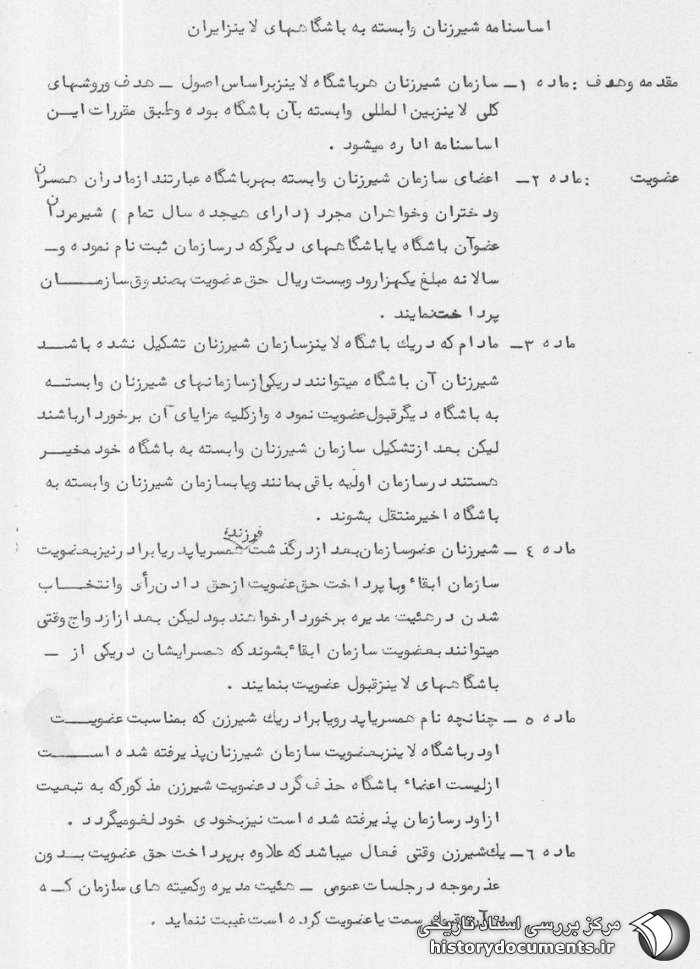 اساسنامه شیرزنان وابسته به باشگاههای لاینزایران
مقدمه وهدف : ماده ۱ـ سازمان شیرزنان هرباشگاه لاینزبراساس اصول ـ هدف وروشهای
کلی لاینزبین المللی وابسته بآن باشگاه بوده وطبق مقررات ایـن
اساسنامه اداره میشود .
عضویت : ماده ۲ـ اعضای سازمان شیرزنان وابسته بهرباشگاه عبارتند ازمادران همسران
ودختران وخواهران مجرد (دارای هیجده سال تمام ) شیرمردان
عضوآن باشگاه یاباشگاههای دیگرکه درسازمان ثبت نام نموده وـ
سالانه مبلغ یکهزارودویست ریال حق عضویت بصندوق سازمـــان
پرداخت نمایند .
ماده ۳ـ مادام که دریك باشگاه لاینزسازمان شیرزنان تشکیل نشده باشـد
شیرزنان آن باشگاه میتوانند دریکی ازسازمانهای شیرزنان وابستـه
به باشگاه دیگرقبول عضویت نموده وازکلیه مزایای آن برخوردارباشند
لیکن بعد ازتشکیل سازمان شیرزنان وابسته به باشگاه خود مخیـر
هستند درسازمان اولیه باقی بمانند ویابسازمان شیرزنان وابسته به
باشگاه اخیرمنتقل بشوند .
فرزند،
ماده ٤ـ شیرزنان عضوسازمان بعد ازدرگذشت همسریاپدریابرادرنیزبعضویت
سازمان ابقاء وباپرداخت حق عضویت ازحق دادن رأی وانتخـاب
شدن درهئیت مدیره برخوردارخواهند بود لیکن بعد ازازدواج وقتی
میتوانند بعضویت سازمان ابقاء بشوند که همسرایشان دریکی از ـ
باشگاههای لاینزقبول عضویت بنمایند .
ماده ۵ـ چنانچه نام همسریاپدرویابرادریك شیرزن که بمناسبت عضویـت
اودرباشگاه لاینزبعضویت سازمان شیرزنان پذیرفته شده اســت
ازلیست اعضاء باشگاه حذف گردد عضویت شیرزن مذکورکه به تبعیت
ازاودرسازمان پذیرفته شده است نیزبخودی خود لغومیگردد .
ماده ٦ـ یك شیرزن وقتی فعال میباشد که علاوه برپرداخت حق عضویت بـدون
عذرموجه درجلسات عمومی ـ هئیت مدیره وکمیته های سازمان کـه
قبول سمت یاعضویت کرده است غیبت ننماید .
مرکز بررسی اسناد تاریخی
historydocuments.ir